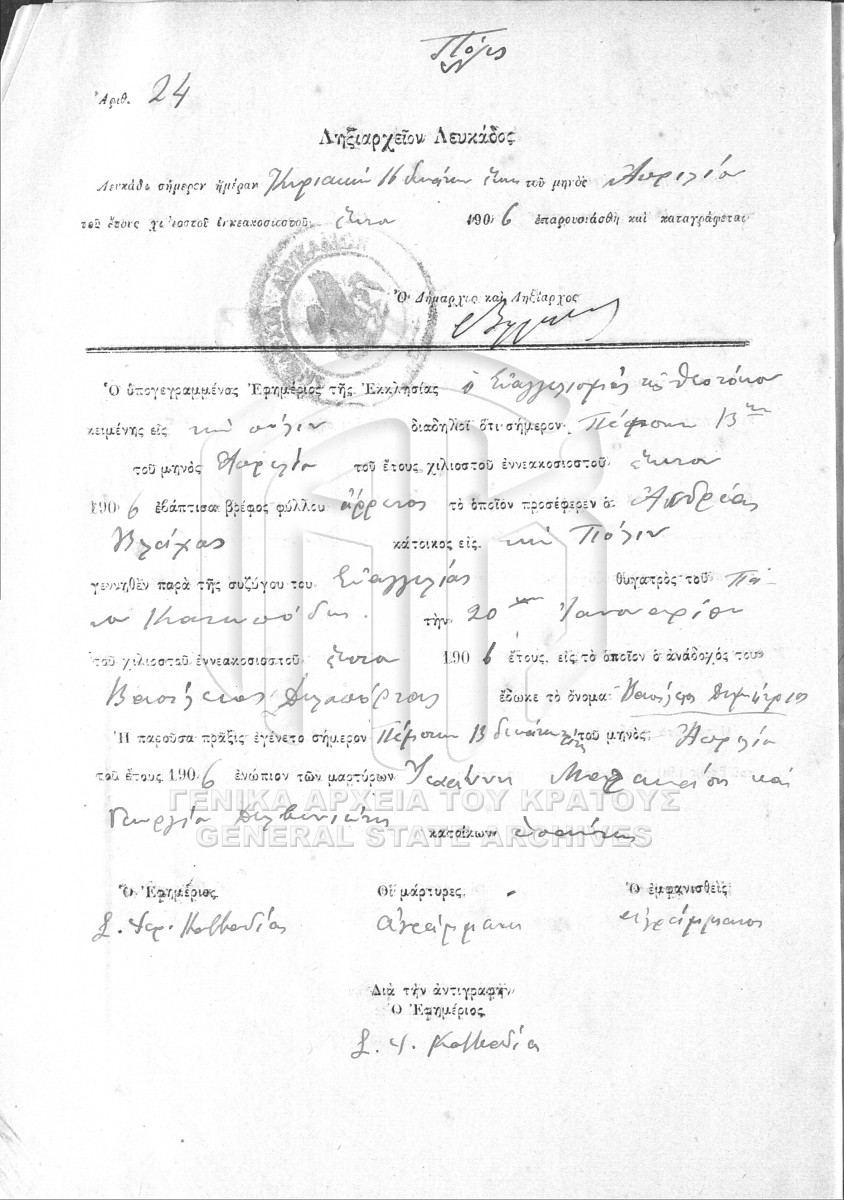 Πόλις
Ἀριθ. 24
Ληξιαρχεῖον Λευκάδος
Λευκάδι σήμερον ἡμέραν Κυριακὴ 16 δεκάτη ἕκτη τοῦ μηνὸς Ἀπριλίου
τοῦ ἔτους χιλιοστοῦ ἐννεακοσιοστοῦ ἕκτου 1906 ἐπαρουσιάσθη καὶ καταγράφεται
Ὁ Δήμαρχος καὶ Ληξίαρχος
Ὁ ὑπογεγραμμένος Ἐφημέριος τῆς Ἐκκλησίας ὁ Εὐαγγελισμὸς τῆς Θεοτόκου
κειμένης εἰς τὴν πόλιν διαδηλοῖ ὅτι σήμερον Πέμπτη 13ην
τοῦ μηνὸς Ἀπριλίου τοῦ ἔτους χιλιοστοῦ ἐννεακοσιοστοῦ ἕκτου
1906 ἐβάπτισα βρέφος φύλλου ἄρρενος τὸ ὁποῖον προσέφερεν ὁ Ἀνδρέας
Βλάχος κάτοικος εἰς τὴν Πόλιν
γεννηθὲν παρὰ τῆς συζύγου του Εὐαγγελίας θυγατρὸς τοῦ
τὴν 20ην Ἰανουαρίου
τοῦ χιλιοστοῦ ἐννεακοσιοστοῦ ἕκτου 1906 ἔτους, εἰς τὸ ὁποῖον ὁ ἀνάδοχός του
Βασίλειος ἔδωκε τὸ ὄνομα Βασίλειος Δημήτριος
Ἡ παροῦσα πρᾶξις ἐγένετο σήμερον Πέμπτη 13 δεκάτη τρίτη τοῦ μηνὸς Ἀπριλίου
τοῦ ἔτους 1906 ἐνώπιον τῶν μαρτύρων Ἰωάννη καὶ
Γεωργίου κατοίκων ἐνταῦθα
ΓΕΝΙΚΑ ΑΡΧΕΙΑ ΤΟΥ ΚΡΑΤΟΥΣ
GENERAL STATE ARCHIVES
Ὁ Ἐφημέριος Οἱ μάρτυρες Ὁ ἐμφανισθεὶς
ἀγράμματοι ἀγράμματος
Διὰ τὴν ἀντιγραφὴν
Ὁ Ἐφημέριος